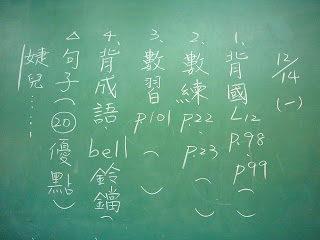 12/14 (一)
1、背國L12 P.98~P99(
2、數練P.22~P.23(  )
3、數習P.101(  )
4、背成語.bell鈴鐺(
△句子(⑳優點)
婕兒……